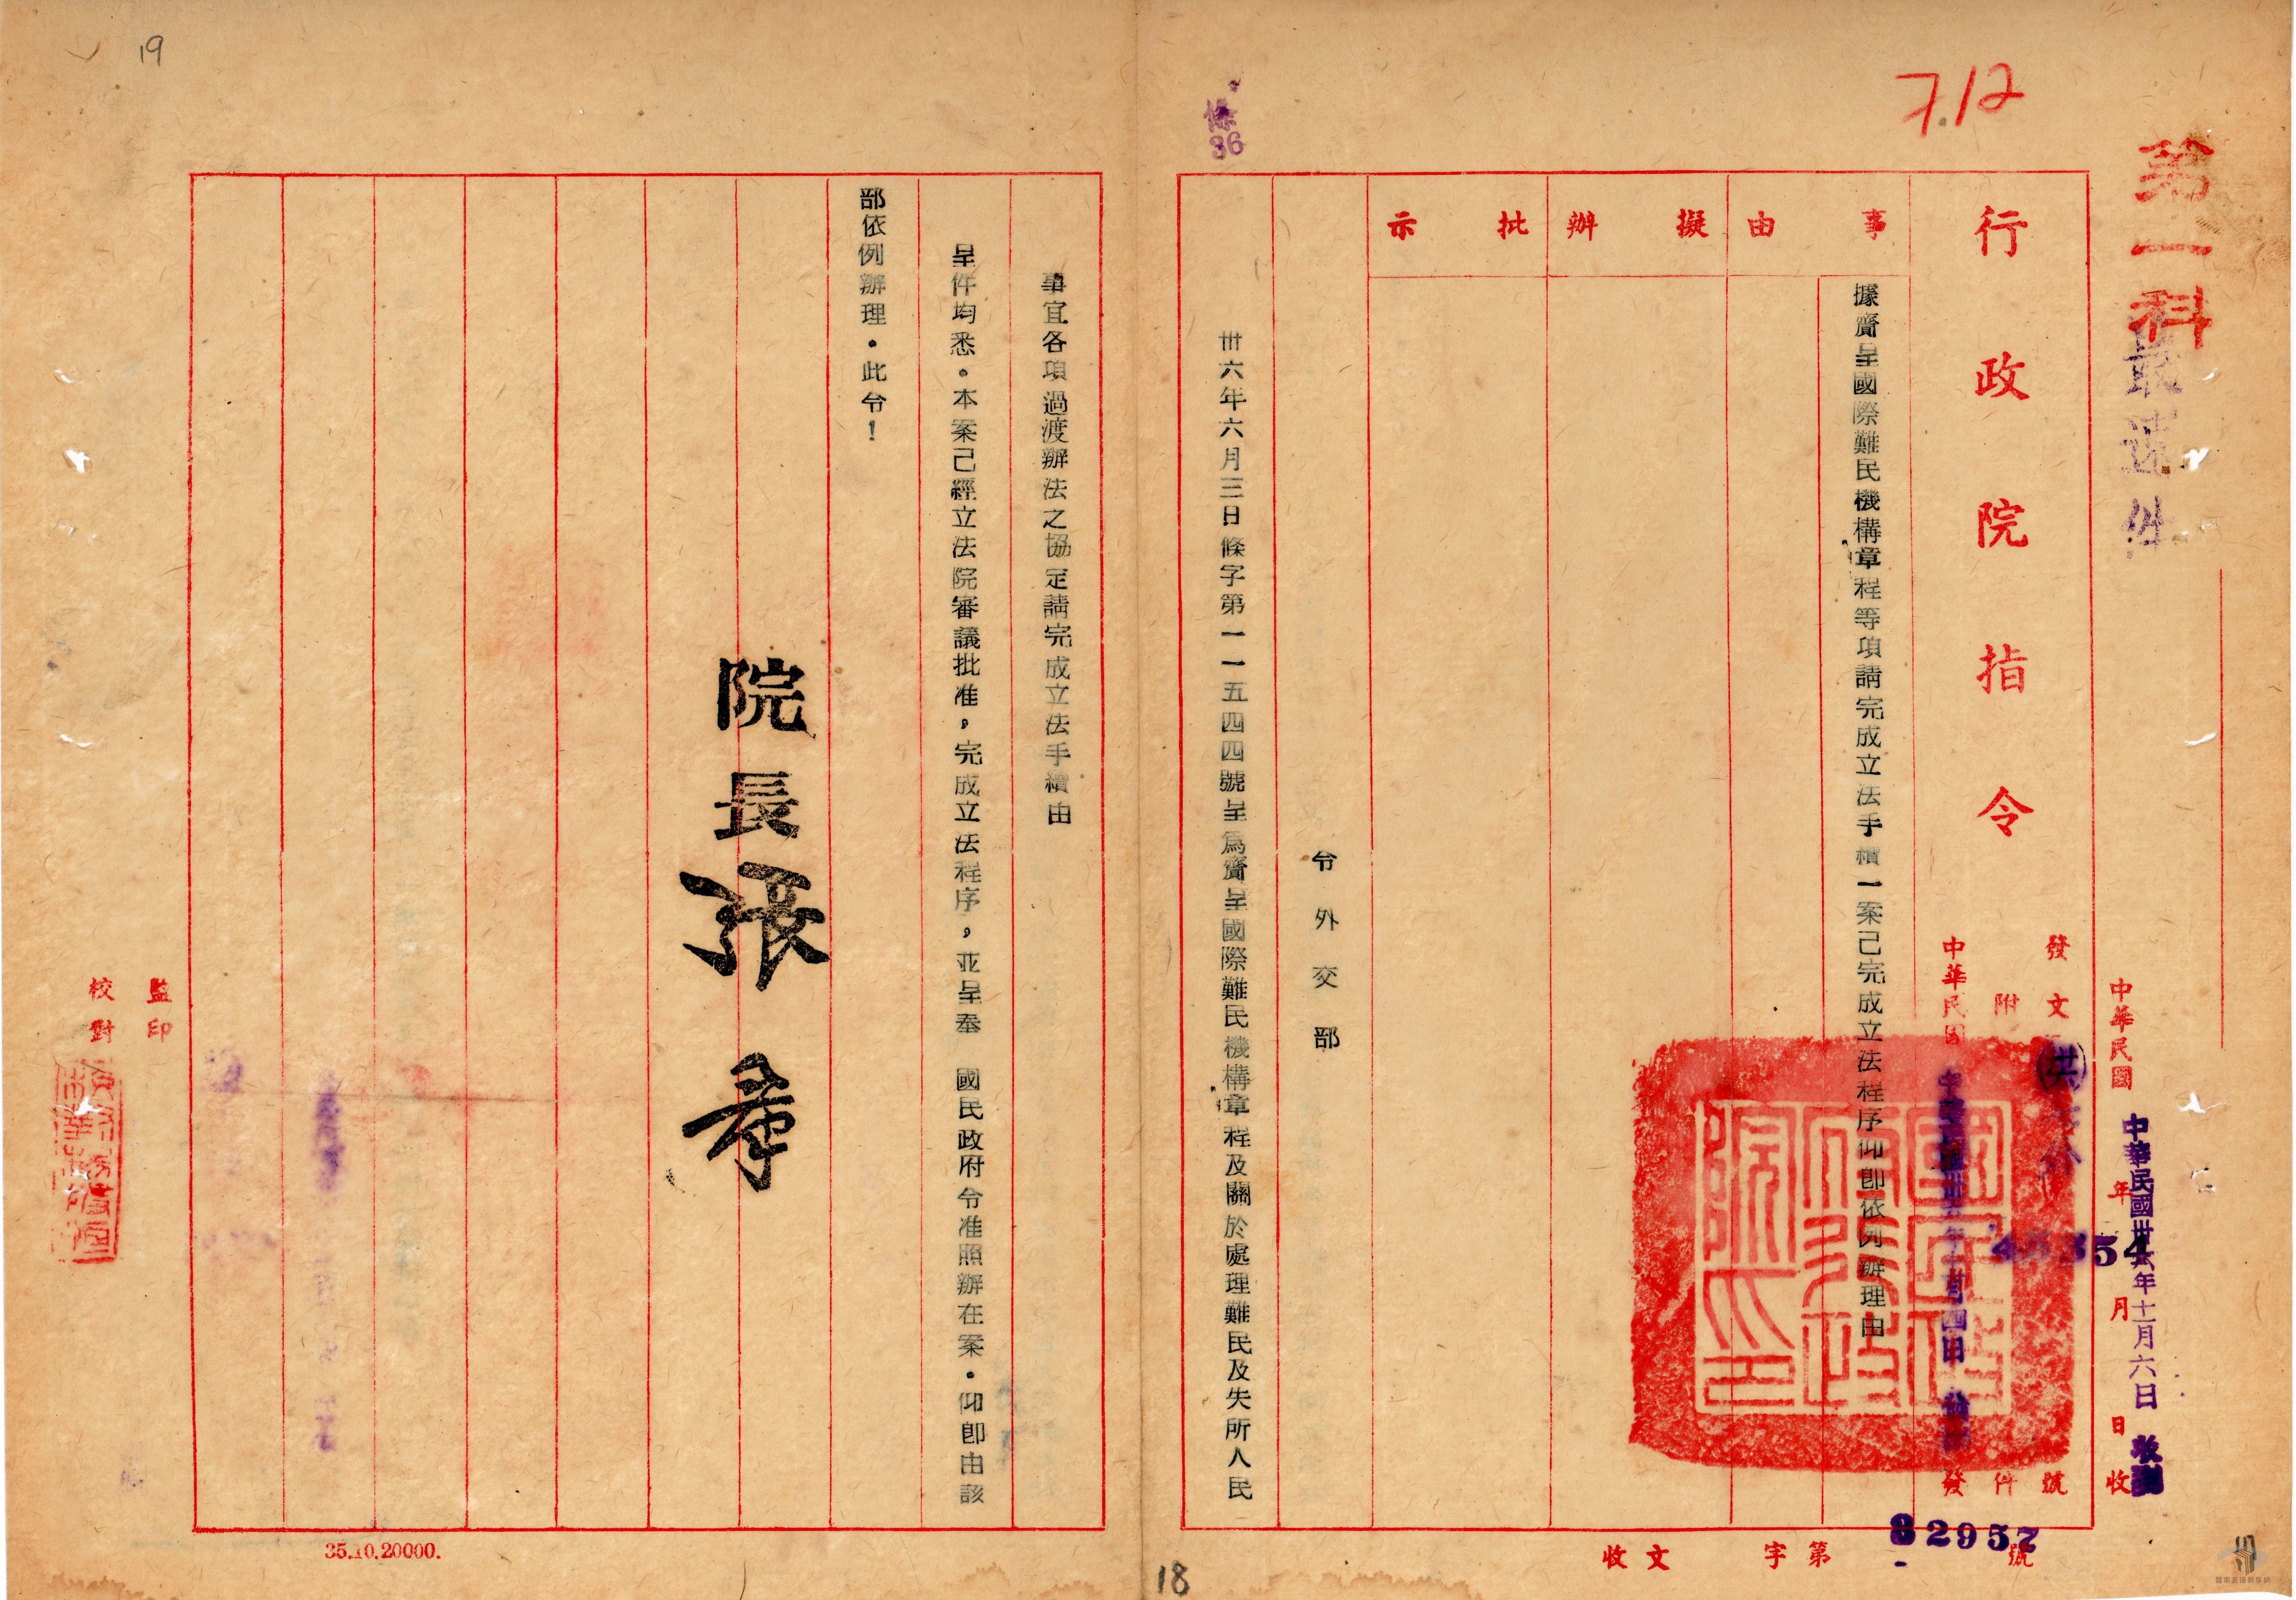 19
712
條
36
第一科
最速件
行政院指令
事由
擬辦
批示
據賫呈國際難民機構章程等項請完成立法手續一案已完成立法程序仰即依例辦理由
發文
號
附件
中華民國
發
中華民國
年
月
日
收
中華民國卅六年十一月六日
收到
洪
令外交部
卅六年六月三日條字第一一五四四號呈爲賫呈國際難民機構章程及關於處理難民及失所人民
事宜各項過渡辦法之協定請完成立法手續由
呈件均悉。本案已經立法院審議批准，完成立法程序，並呈奉 國民政府令准照辦在案。仰即由該
部依例辦理。此令！
院長張羣
監印
校對
收文
字第
82957
號
35.10.20000.
18